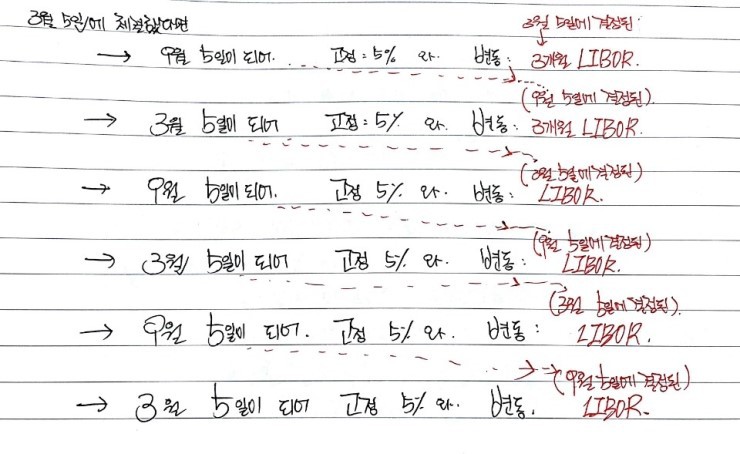 3월 5일에 체결했다면
3월 5일에 결정된
→ 9월 5일이 되어. 고정: 5% 와. 변동: 3개월 LIBOR.
(9월 5일에 결정된).
→ 3월 5일이 되어 고정: 5% 와 변동: 3개월 LIBOR.
(3월 5일에 결정된)
→ 9월 5일이 되어. 고정 5% 와. 변동: LIBOR.
(9월 5일에 결정된)
→ 3월 5일이 되어 고정 5% 와. 변동: LIBOR.
(3월 5일에 결정된).
→ 9월 5일이 되어. 고정 5% 와. 변동: LIBOR.
(9월 5일에 결정된)
→ 3월 5일이 되어 고정 5% 와. 변동. LIBOR.